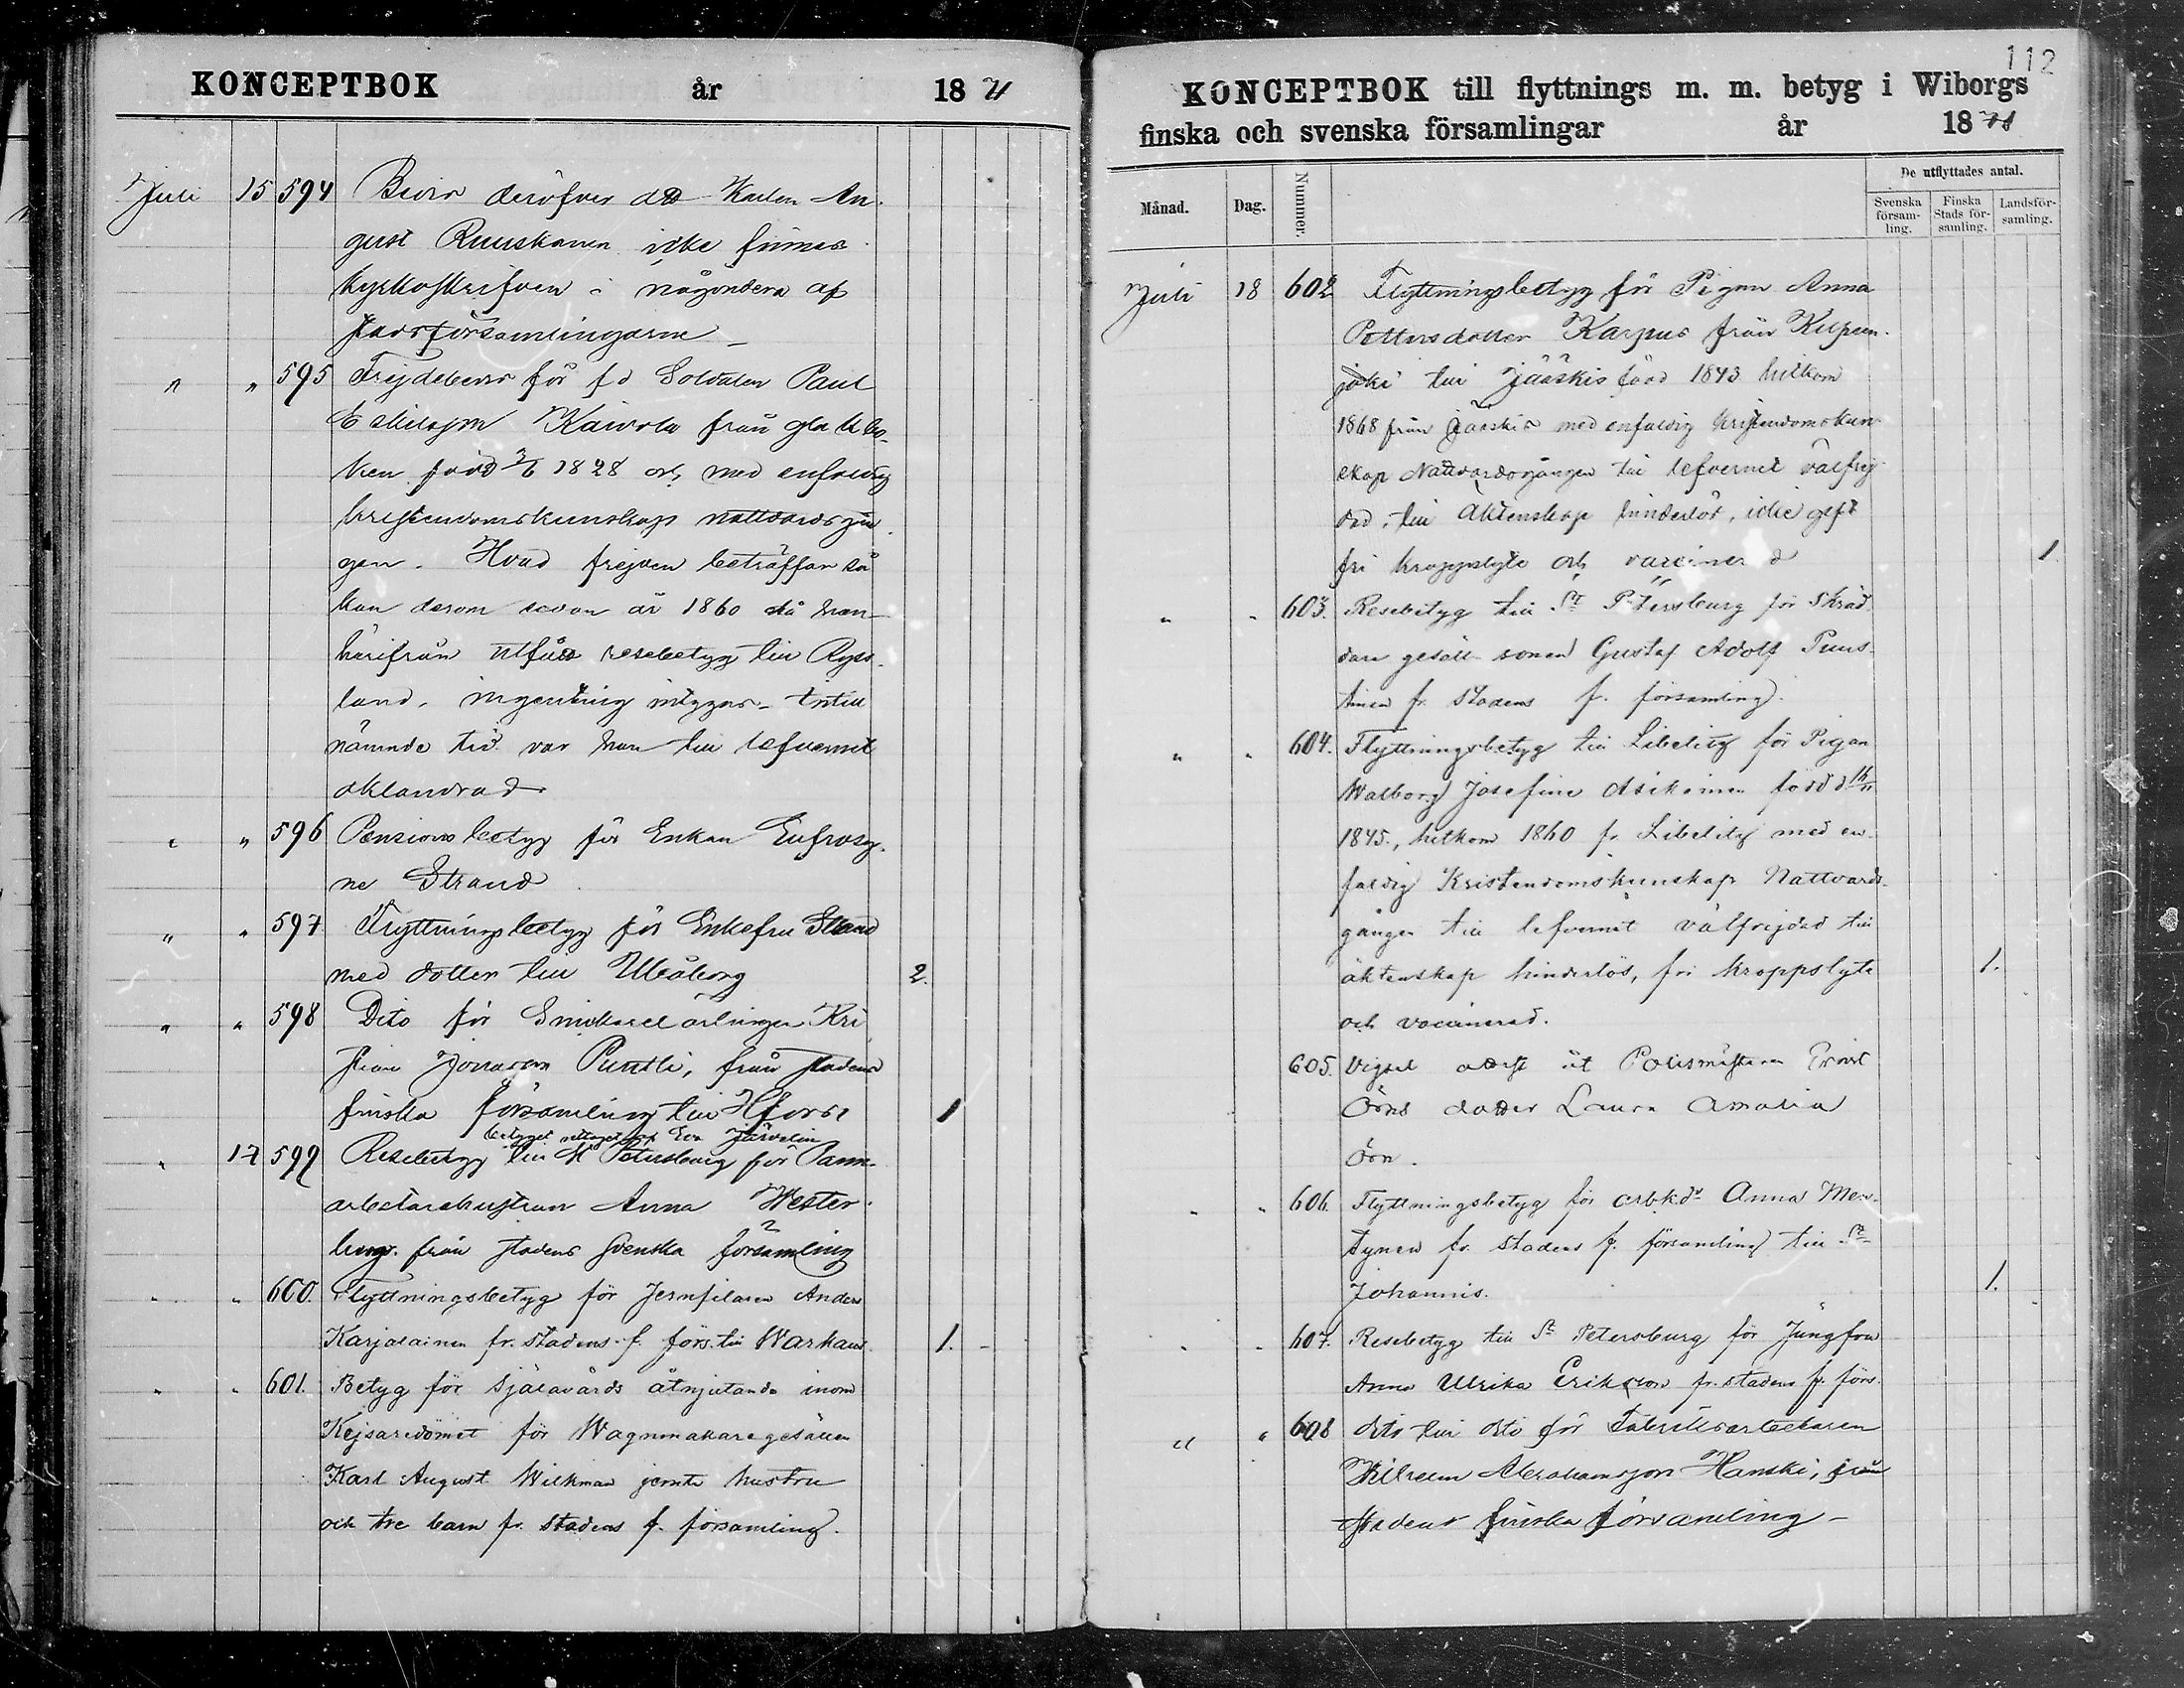 KONCEPTBOK år 1871
Juli 15 594 Bevis deröfver att Karlen Au-
gust Ruuskanen icke finnes
kyrkoskrifven i någondera af
stadsförsamlingarne
" " 595 Frejdebevis för f d Soldaten Paul
Eskilsson Kaivola från gla
ken född 3/6 1828 och med enfaldig
kristendomskunskap nattvardsgån
gen. Hvad frejden beträffar så
kan derom sedan år 1860 då han
härifrån utfått resebetyg till Ryss-
land, ingenting intygas. Intill
nämnde tid var han till lefvernet
oklandrad
" " 596 Pensions betyg för Enkan Eufrosy-
ne Strand
" " 597 Flyttningsbetyg för Enkefru Strand
med dotter till Uleåborg 2.
" " 598 Dito för Smidslärlingen Kri
stian Jonasson Puntti, från stadens
finska församling till Hfors 1
betyget uttaget af Eva Järvelin
" 17 599 Resebetyg till St Petersburg för
arbetarehustrun Anna Wester-
berg från stadens svenska församling
" " 600. Flyttningsbetyg för Jernfilaren Anders
Karjalainen fr. stadens f. förs. till Warkaus. 1.
" " 601. Betyg för själavårds åtnjutande inom
Kejsaredömet för Wagnmakaregesällen
Karl August Wilkman jemte hustru
och tre barn fr. stadens f. församling.
112
KONCEPTBOK till flyttnings m. m. betyg i Wiborgs
finska och svenska församlingar år 1871
Månad. Dag. Nummer. De utflyttades antal.
Svenska försam- ling. Finska Stads för- samling. Landsför- samling.
Juli 18 602 Flyttningsbetyg för Pigan Anna
Pettersdotter Karpus från Kilpeen-
joki till Jääskis född 1843 hitkom
1868 från Jääskis med enfaldig kristendomskun-
skap Nattvardsgången till lefvernet välfrej-
dad, till äktenskap hinderlös, icke gift
fri kroppslyte och vaccinerad 1
" " 603. Resebetyg till St Petersburg för Skräd-
dare gesällsonen Gustaf Adolf Puus-
tinen fr. stadens f. församling.
" " 604. Flyttningsbetyg till Libelitz för Pigan
Walborg Josefina Asikainen född d 16/11
1845., hitkom 1860 fr. Libelitz med en-
faldig Kristendomskunskap Nattvards-
gången till lefvernet välfrejdad till
äktenskap hinderlös, fri kroppslyte 1.
och vaccinerad.
605. Vigsel attest åt Polismästaren Ernst
Örns dotter Laura Amalia
Örn.
" " 606. Flyttningsbetyg för arbkdr Anna Men-
tynen fr. stadens f. församling till St
Johannis. 1.
" " 607. Resebetyg till St Petersburg för Jungfrun
Anna Ulrika Eriksson fr. stadens f. förs.
" " 608 dito till dito för Fabriksarbetaren
Wilhelm Abrahamsson Hanski, från
stadens finska församling